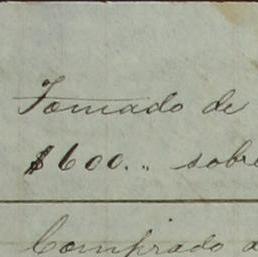 Tomado de
$600.. sobre
Comprado a